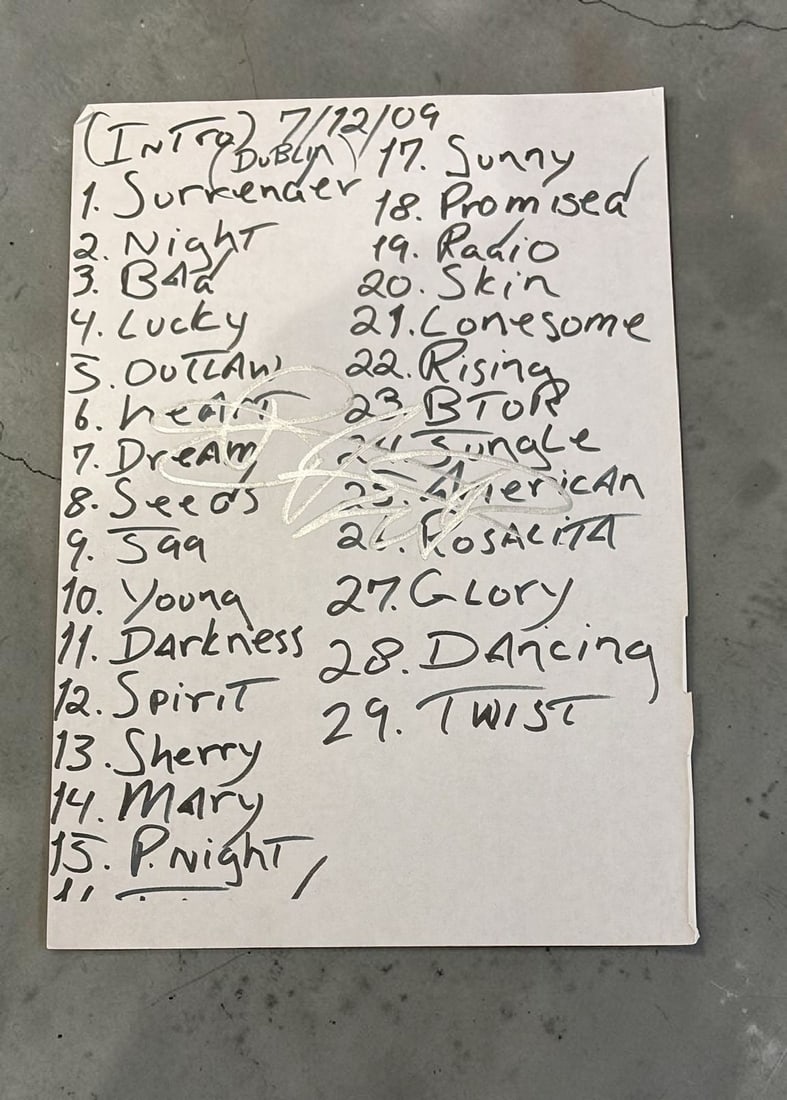 (INTRO) 7/12/09
(DUBLIN)
1. Surrender
2. Night
3. BAd
4. Lucky
5. OUTLAW
6. heART
7. DreAM
8. Seeds
9. J99
10. Young
11. DArkness
12. SpiriT
13. Sherry
14. MAry
15. P.NighT
17. Sunny
18. Promised
19. Radio
20. Skin
21. Lonesome
22. Rising
23. BTOR
24. Jungle
25. AmericAn
26. ROSALITA
27. GLory
28. DAncing
29. TWIST